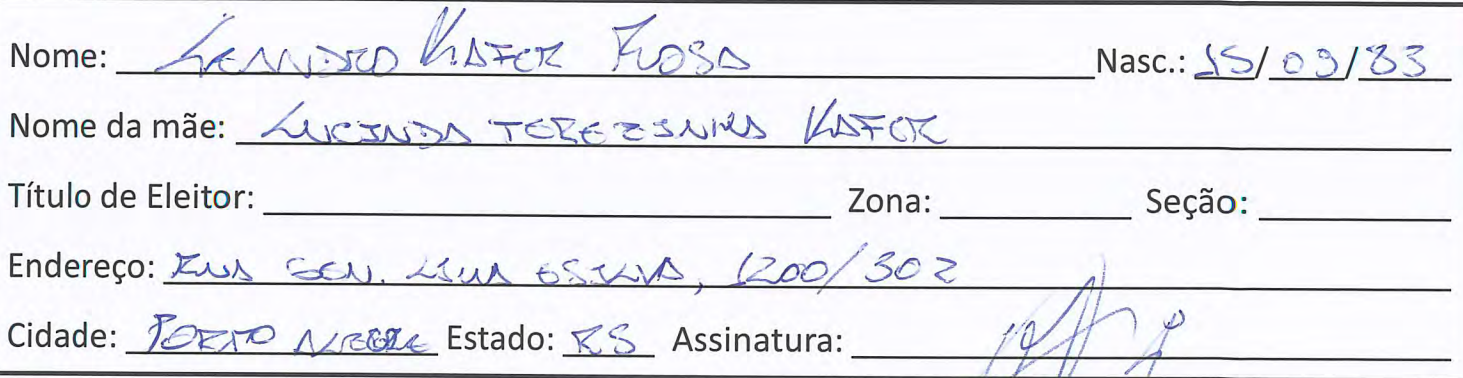 Nome: LEANDRO KAFER ROSA Nasc.: 15/09/83
Nome da mãe: LUCINDA TEREZINHA KAFER
Título de Eleitor: Zona: Seção:
Endereço: RUA GEN. LIMA E SILVA, 1200/302
Cidade: PORTO ALEGRE Estado: RS Assinatura: